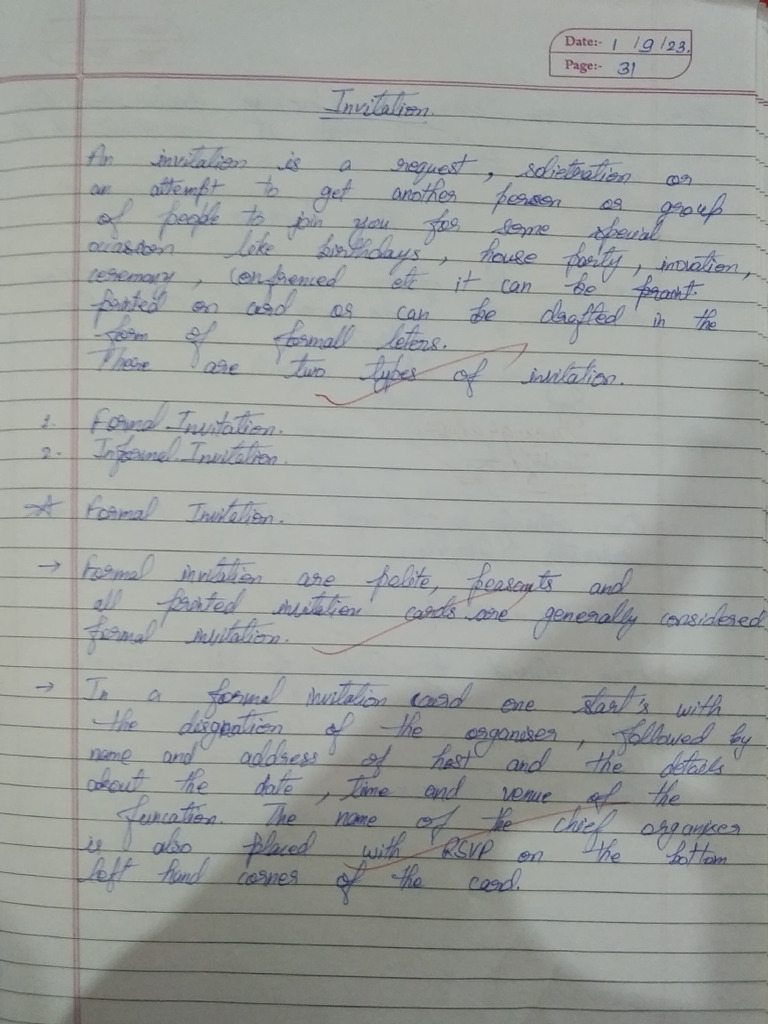 Date:- 1 /9/23.
Page:- 31
Invitation.
An invitation is a request, solietration or
an attempt to get another person or group
of people to join you for some special
ocassion like birthdays, house party, inovation,
ceremony, confrenced etc it can be praint
printed on card or can be drafted in the
form of formall leters.
There are two types of invitation.
1. Formal Invitation.
2. Informal Invitation.
Formal Invitation.
→ Formal invitation are polite, peasants and
all printed invitation cards are generally considered
formal invitation.
→ In a formal invitation card one start's with
the disgnation of the organiser, followed by
name and address of host and the details
about the date, time and venue of the
funcation. The name of the chief organiser
is also placed with RSVP on the bottom
left hand corner of the card.